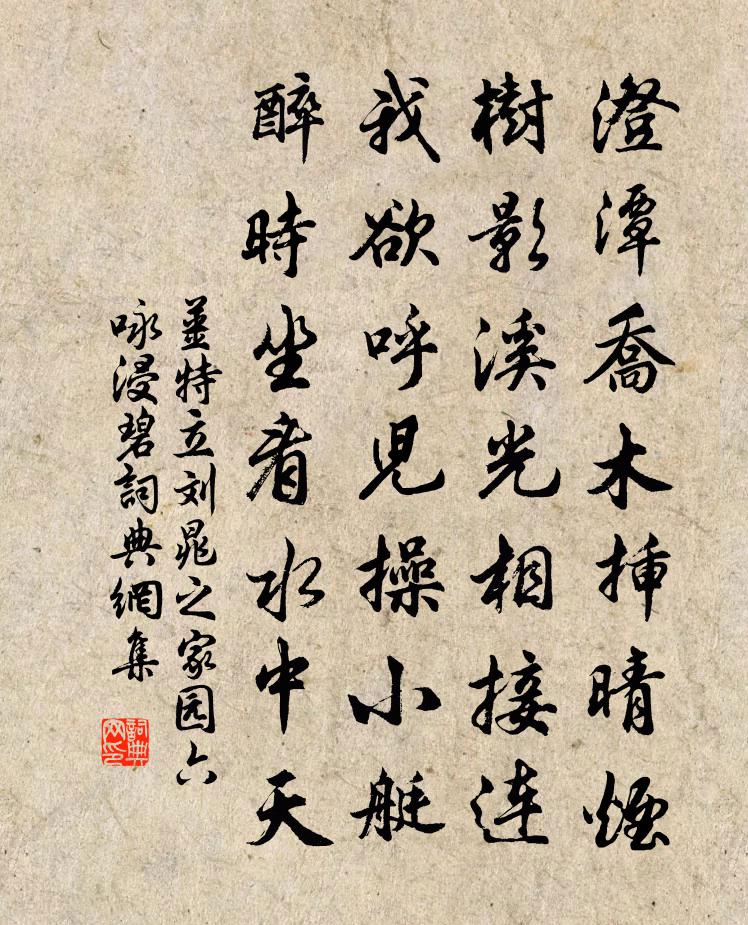 澄潭喬木挿晴煙
樹影溪光相接連
我欲呼児操小艇
醉時坐看水中天
姜特立刘晁之家园六
咏浸碧詞典網集
詞典網印